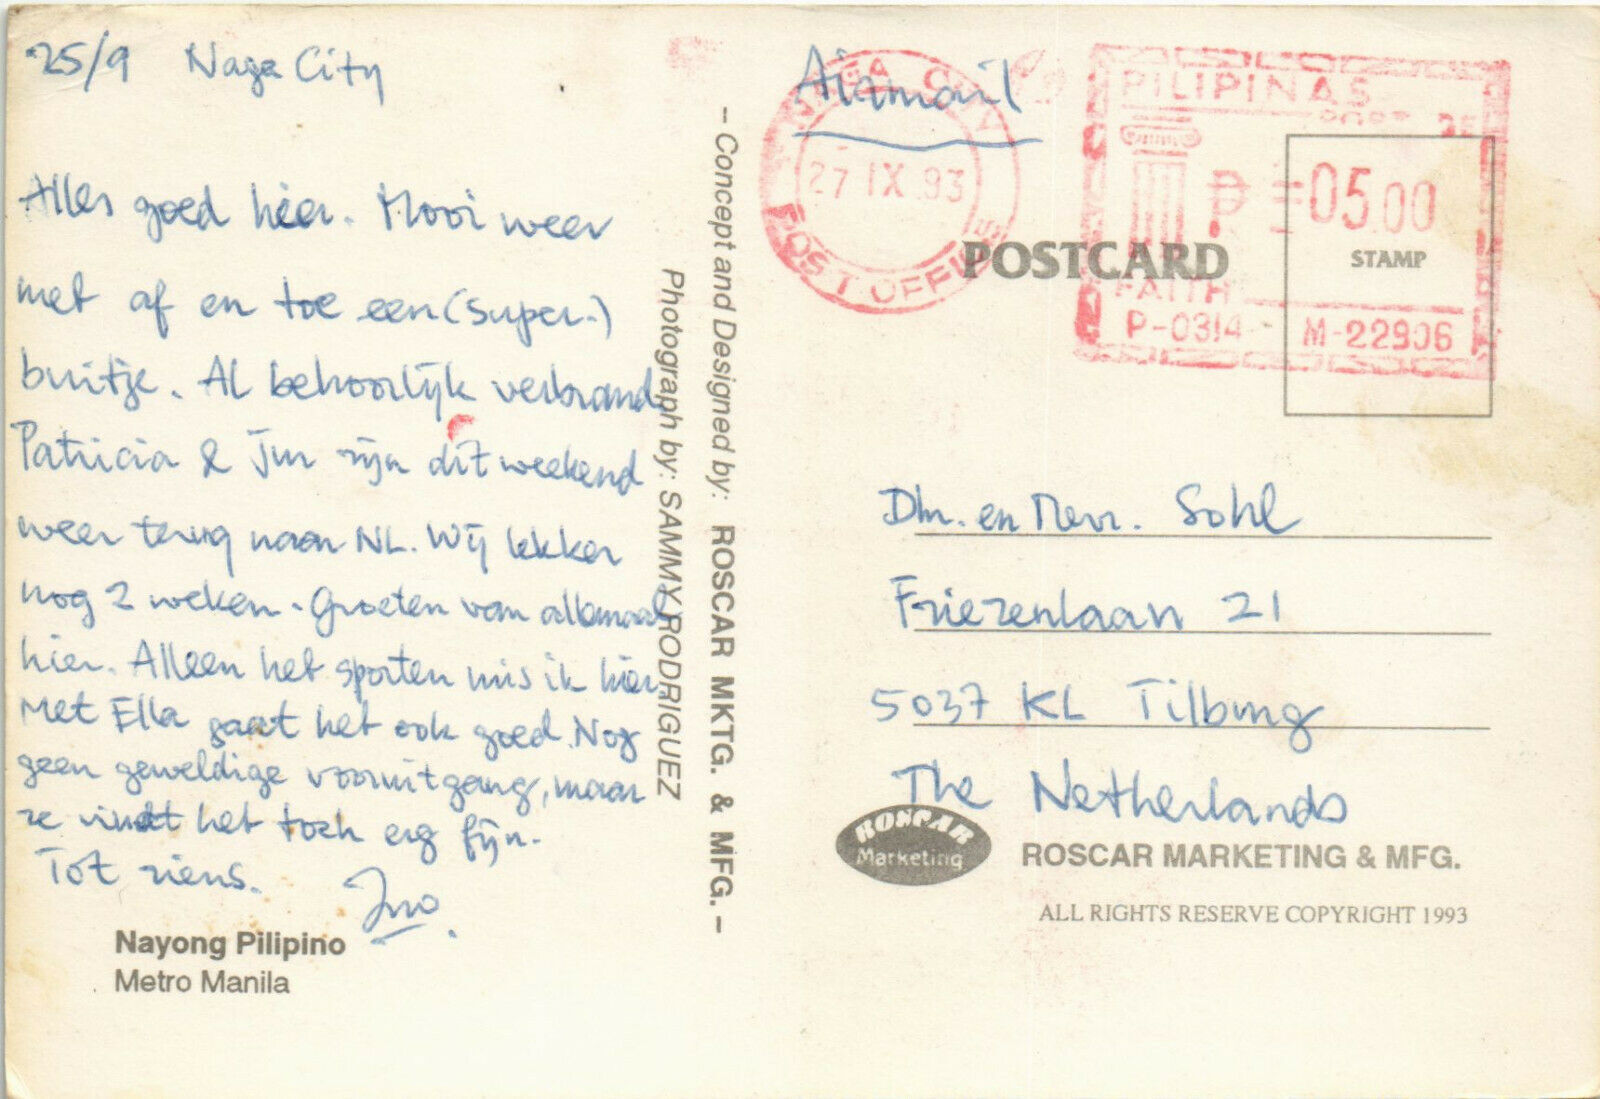 25/9 Naga City
Alles goed hier. Mooi weer
met af en toe een (super-)
buitje. Al behoorlijk verbrand.
Patricia & Jur zijn dit weekend
weer terug naar NL. Wij lekker
nog 2 weken. Groeten van allemaal
hier. Alleen het sporten mis ik hier.
Met Ella gaat het ook goed. Nog
geen geweldige vooruitgang, maar
ze vindt het toch erg fijn.
Tot ziens.
Nayong Pilipino
Metro Manila
– Concept and Designed by: ROSCAR MKTG. & MFG. –
Photograph by: SAMMY RODRIGUEZ
Airmail
NAGA CITY
27 IX 93
POST OFFICE
PILIPINAS
₱ =05.00
FAITH
P-0314 M-22906
POSTCARD
STAMP
Dhr. en Mevr. Sohl
Friezenlaan 21
5037 KL Tilburg
The Netherlands
ROSCAR
Marketing
ROSCAR MARKETING & MFG.
ALL RIGHTS RESERVE COPYRIGHT 1993